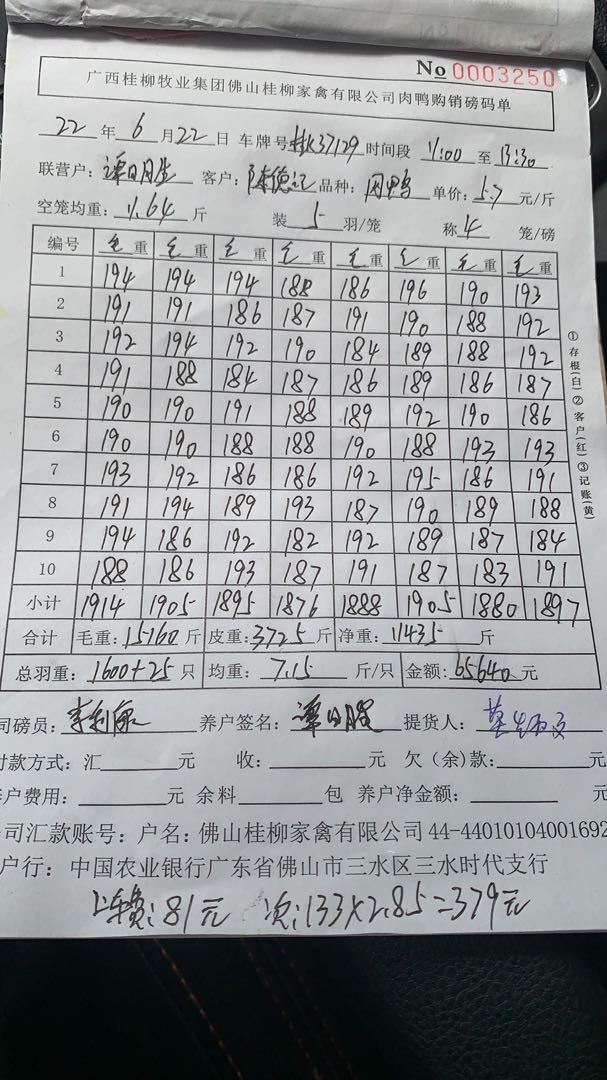 No 0003250
广西桂柳牧业集团佛山桂柳家禽有限公司肉鸭购销磅码单
22 年 6 月 22 日 车牌号 K37129 时间段 11:00 至 13:30
联营户: 谭日胜 客户: 陈德记 品种: 肉鸭 单价: 5.7 元/斤
空笼均重: 11.64 斤 装 5 羽/笼 称 4 笼/磅
编号 毛重 毛重 毛重 毛重 毛重 毛重 毛重 毛重
1 194 194 194 188 186 196 190 193
2 191 191 186 187 191 190 188 192
3 192 194 192 190 184 189 188 192
4 191 188 184 187 186 189 186 187
5 190 190 191 188 189 192 190 186
6 190 190 188 188 190 188 193 193
7 193 192 186 186 192 195 186 191
8 191 194 189 193 187 190 189 188
9 194 186 192 182 192 189 187 184
10 188 186 193 187 191 187 183 191
小计 1914 1905 1895 1876 1888 1905 1880 1897
合计 毛重: 15160 斤 皮重: 3725 斤 净重: 11435 斤
总羽重: 1600+25 只 均重: 7.15 斤/只 金额: 65640 元
①存根(白)②客户(红)③记账(黄)
司磅员: 李利康 养户签名: 谭日胜 提货人:
付款方式: 汇 元 收: 元 欠(余)款: 元
养户费用: 元 余料 包 养户净金额: 元
公司汇款账号: 户名: 佛山桂柳家禽有限公司 44-44010104001692
户行: 中国农业银行广东省佛山市三水区三水时代支行
上车费: 81元 次: 133×2.85=379元